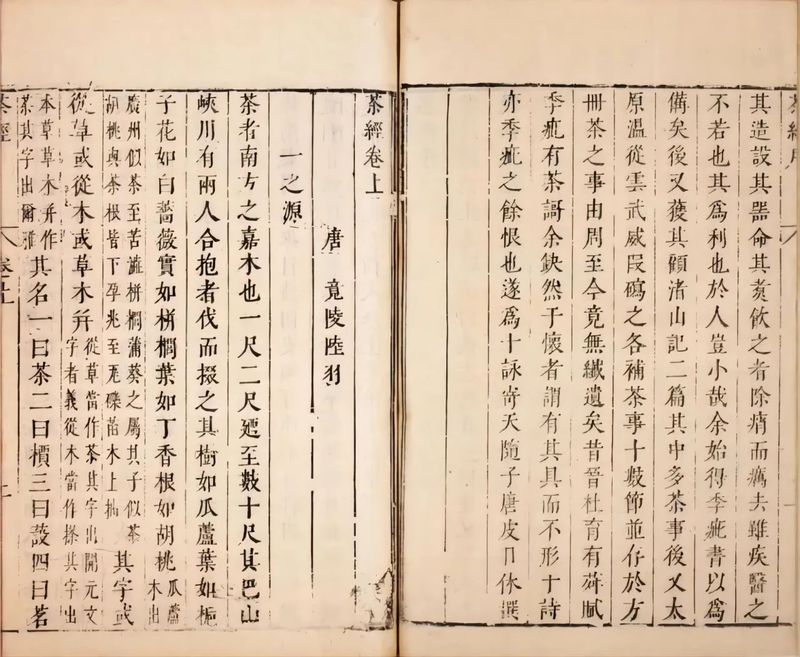 其造設其器命其煑飲之者除痟而癘去雖疾醫之
不若也其爲利也於人豈小哉余始得季疵書以爲
備矣後又獲其顧渚山記二篇其中多茶事後又太
原溫從雲武威段磶之各補茶事十數節並存於方
冊茶之事由周至今竟無纖遺矣昔晉杜育有荈賦
季疵有茶謌余缺然于懷者謂有其具而不形于詩
亦季疵之餘恨也遂爲十詠寄天隨子唐皮日休譔
茶經卷上
唐 竟陵陸羽
一之源
茶者南方之嘉木也一尺二尺廼至數十尺其巴山
峽川有兩人合抱者伐而掇之其樹如瓜蘆葉如梔
子花如白薔薇實如栟櫚葉如丁香根如胡桃瓜蘆木出
廣州似茶至苦澁栟櫚蒲葵之屬其子似茶胡桃與茶根皆下孕兆至瓦礫苗木上抽其字或
從草或從木或草木并從草當作茶其字出開元文字者義從木當作搽其字出
本草草木并作荼其字出爾雅其名一曰茶二曰檟三曰蔎四曰茗
茶經 卷上